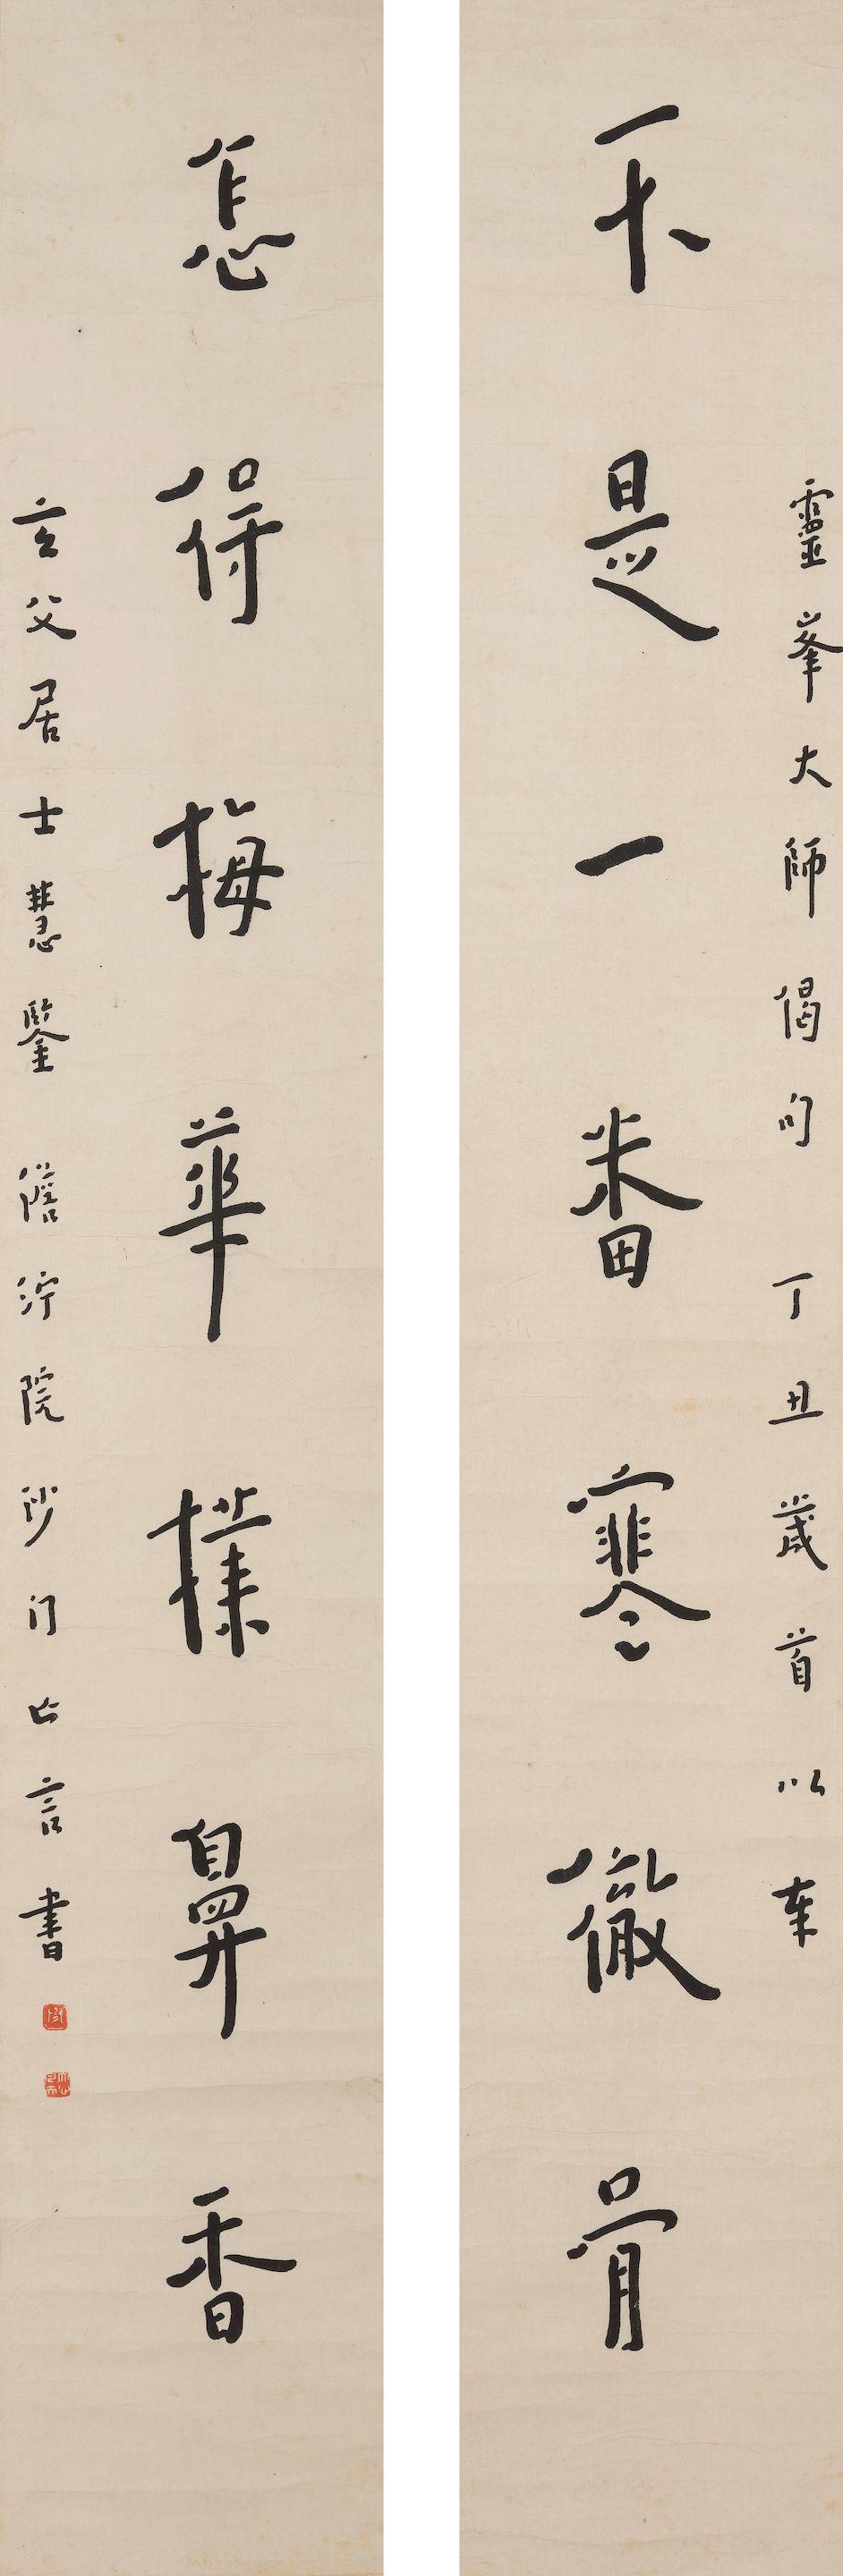 靈峯大師偈句 丁丑歲首以奉
不是一番寒徹骨
怎得梅華撲鼻香
玄父居士慧鑒 儋渟院沙门亡言書